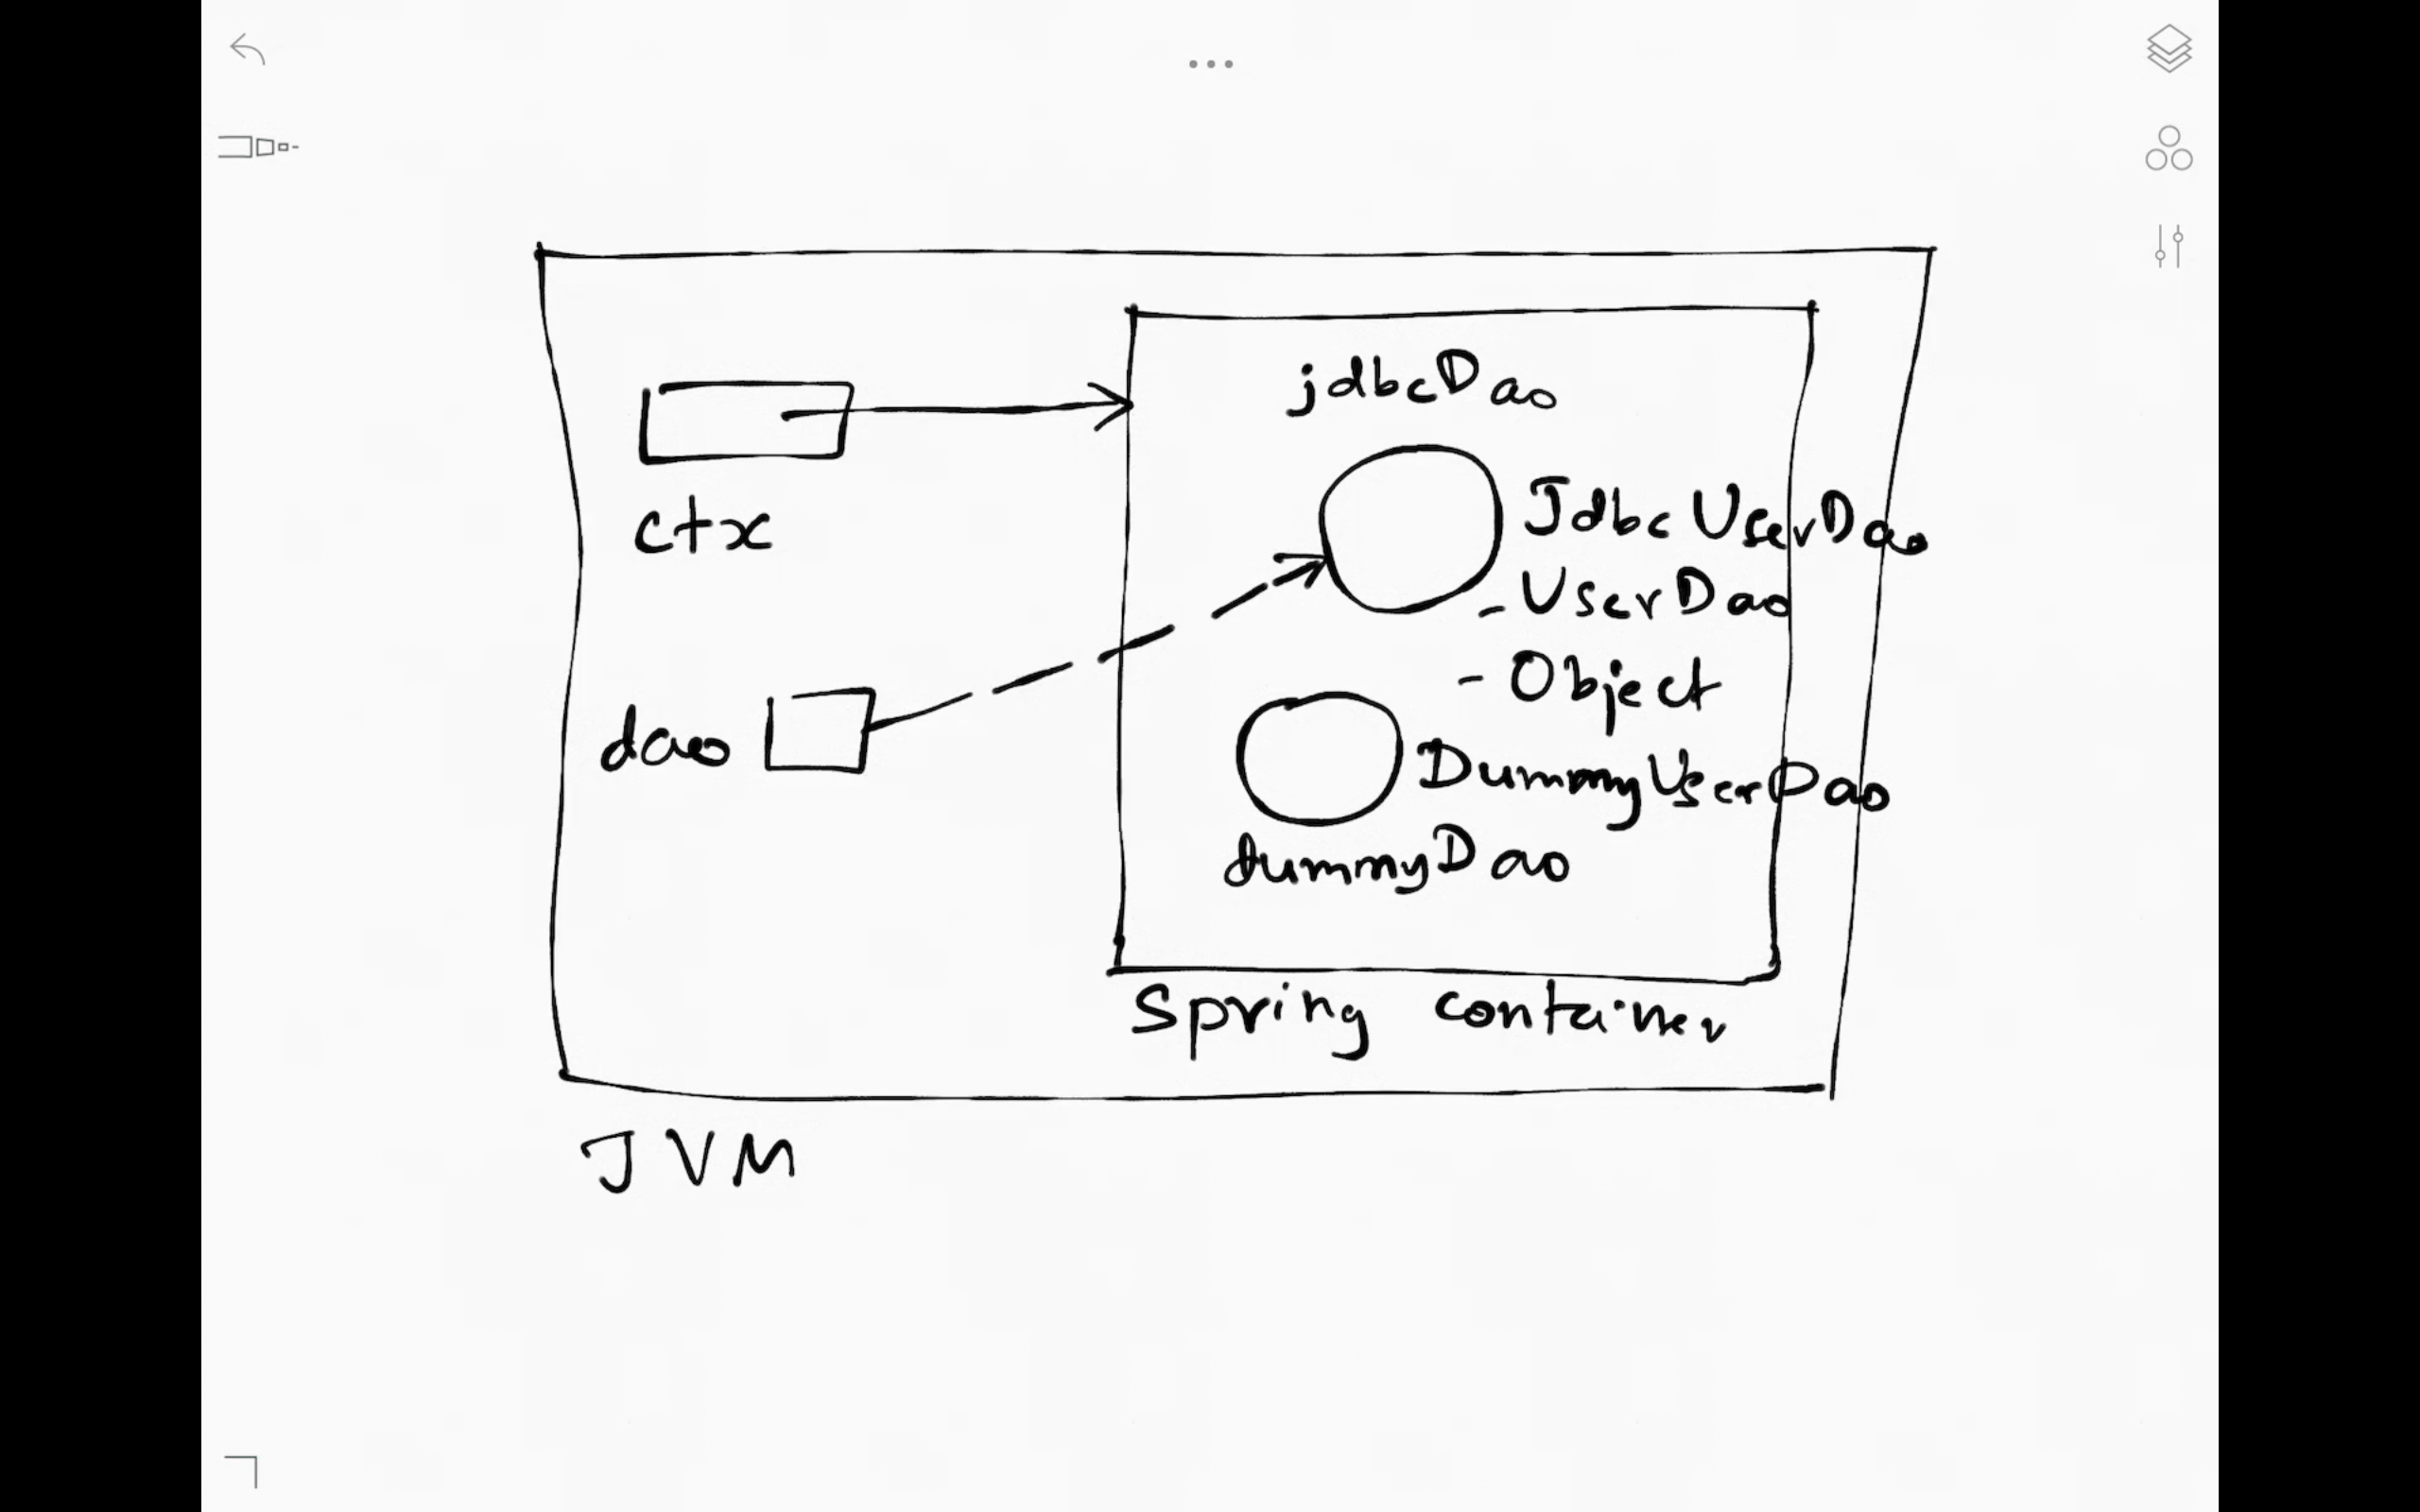 jdbcDao
ctx
JdbcUserDao
- UserDao
- Object
dao
DummyUserDao
dummyDao
Spring container
JVM